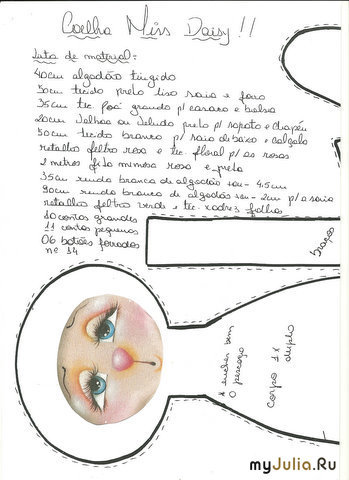 Coelha Miss Daisy!!
Lista de material:
40cm algodão tingido
50cm tecido preto liso saia e forro
35cm tec. poá grande p/ casaco e bolsa
20cm ou veludo preto p/ sapato e chapéu
50cm tecido branco p/ saia debaixo e calçola
retalhos feltro rosa e tec. floral p/ as rosas
2 metros fita mimosa rosa e preta
35cm renda branca de algodão 4.5cm
90cm renda branca de algodão 2cm p/ a saia
retalhos feltro verde e tec. xadrez folhas
10 contas grandes
11 contas pequenas
06 botões forrados
nº 14
Braços
* encher bem
o pescoço
Corpo 1x
duplo
myJulia.Ru